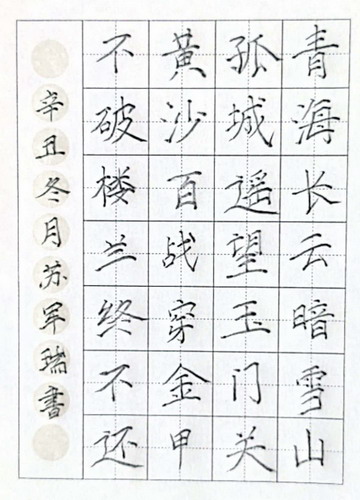 青海长云暗雪山
孤城遥望玉门关
黄沙百战穿金甲
不破楼兰终不还
辛丑冬月苏军瑞書